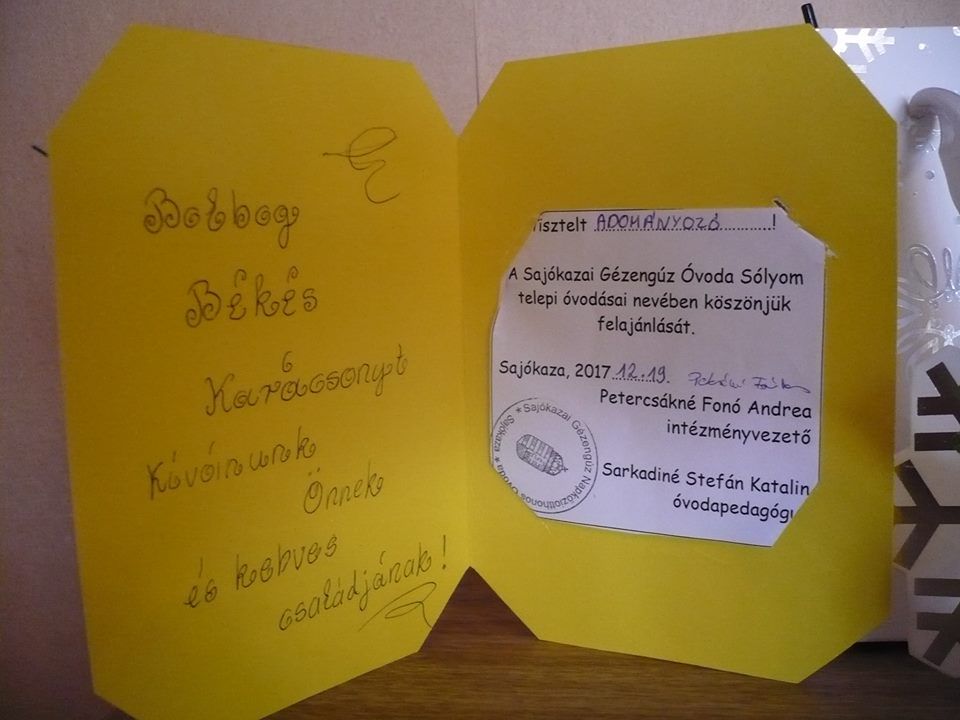 Boldog
Békés
Karácsonyt
Kívánunk
Önnek
és kedves
családjának!
Tisztelt ADOMÁNYOZÓ!
A Sajókazai Gézengúz Óvoda Sólyom
telepi óvodásai nevében köszönjük
felajánlását.
Sajókaza, 2017 12.19.
Petercsákné Fonó Andrea
intézményvezető
Sajókazai Gézengúz Napköziotthonos Óvoda * Sajókaza *
Sarkadiné Stefán Katalin
óvodapedagógu